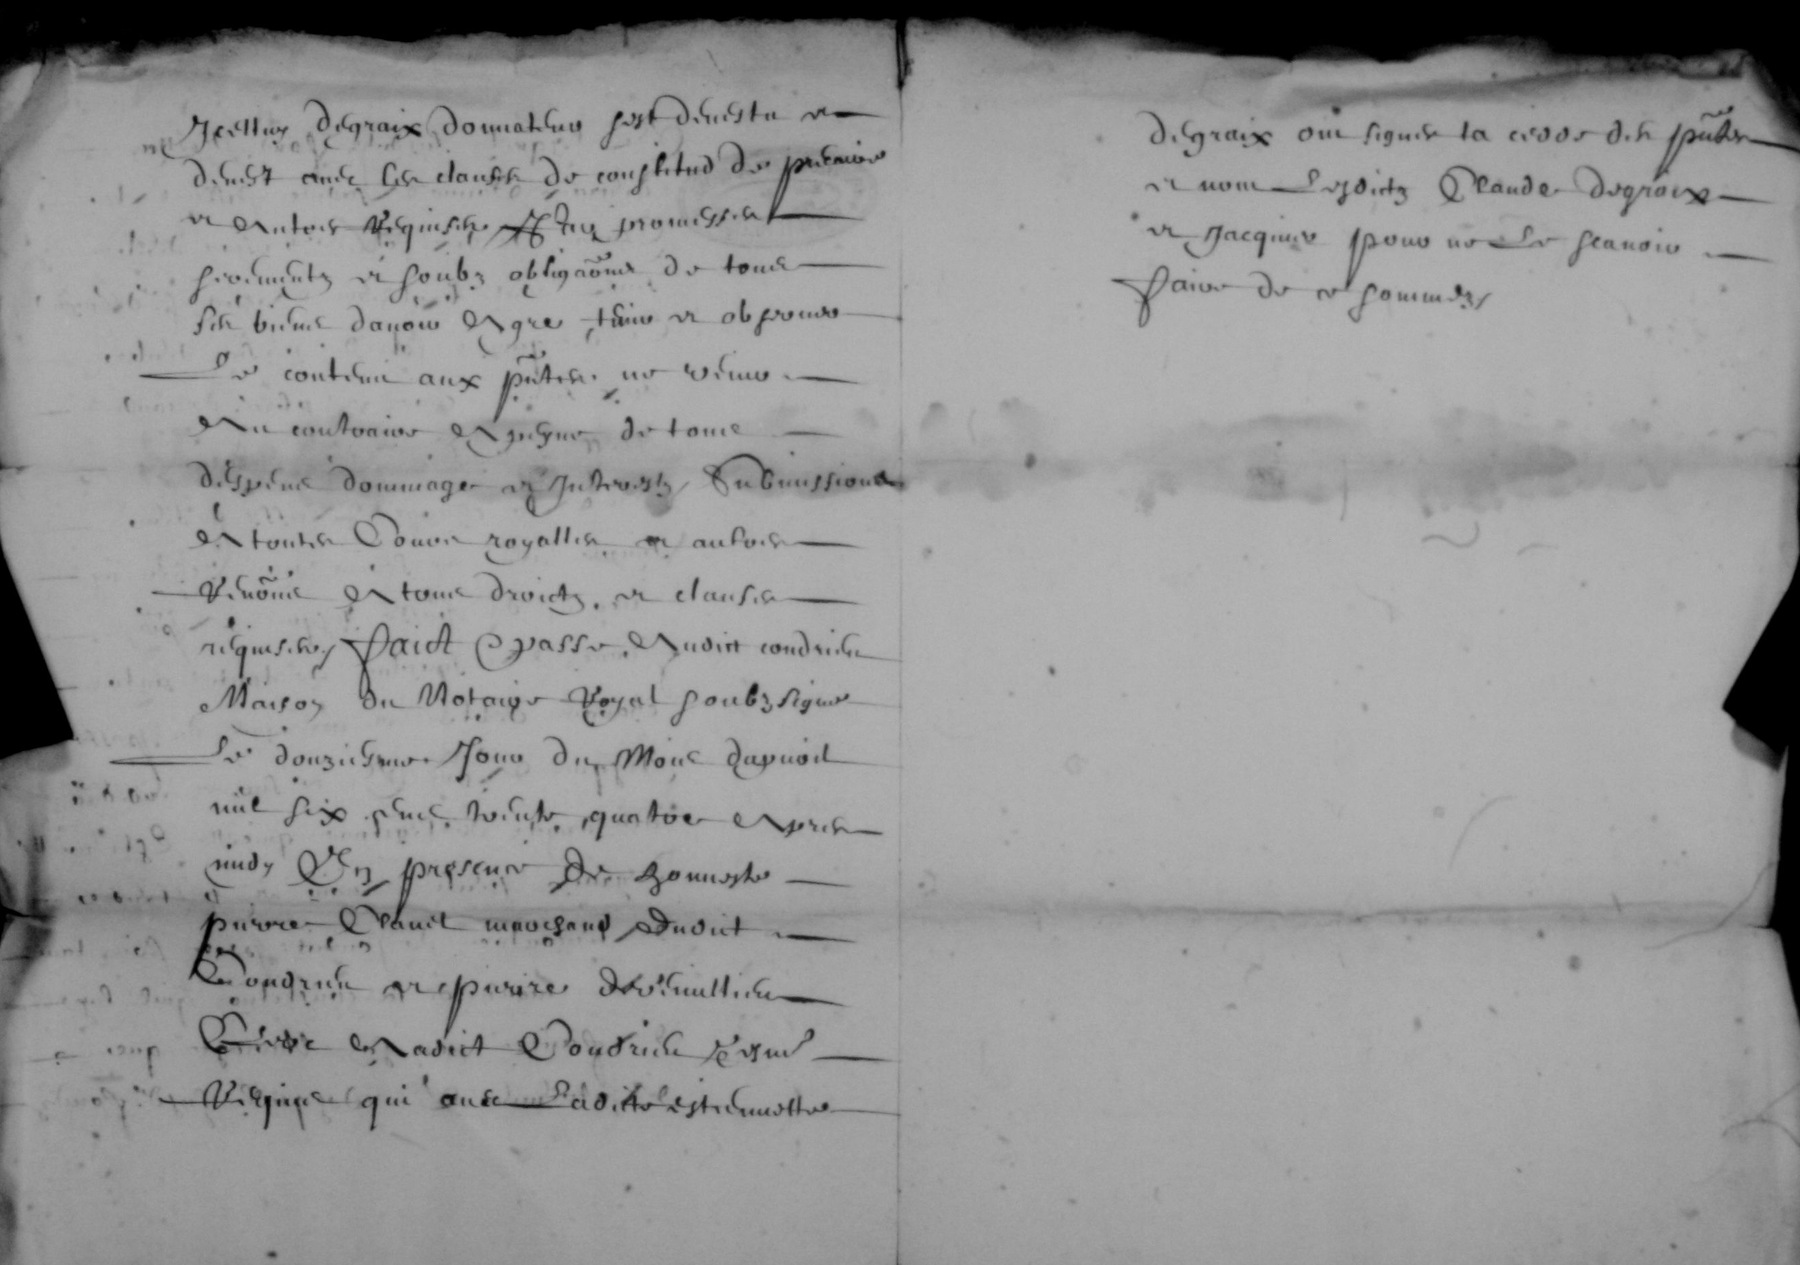 Icelluy degraix donnateur sest devestu et
devest avec les clauses de constitud de precaire
et autres requises Et soubz promesses
serementz et soubz obliga͠ons de tous
ses biens davoir a gre tenir et observer
Le contenu aux pn̄tes ne venir
au contraire a peyne de tous
despens dommages et Interestz Submissions
a toutes Cours royalles et autres
Renōns a tous droictz et clauses
requises, Faict et passe audict condrieu
Maison du Notaire Royal soubzsigne
Le douziesme Jour du Mois dapvril
mil six cens trente quatre apres
midy En presence de honneste
pierre Clavel marchand dudict
Condrieu et pierre
Clerc audict Condrieu tesmᵗ
Requis qui avec Ladicte estiennette
degraix ont signes la cedde des pn̄tes
et nom Lesdictz Claude degraix
et Jacquier pour ne Le scavoir
faire de ce sommes